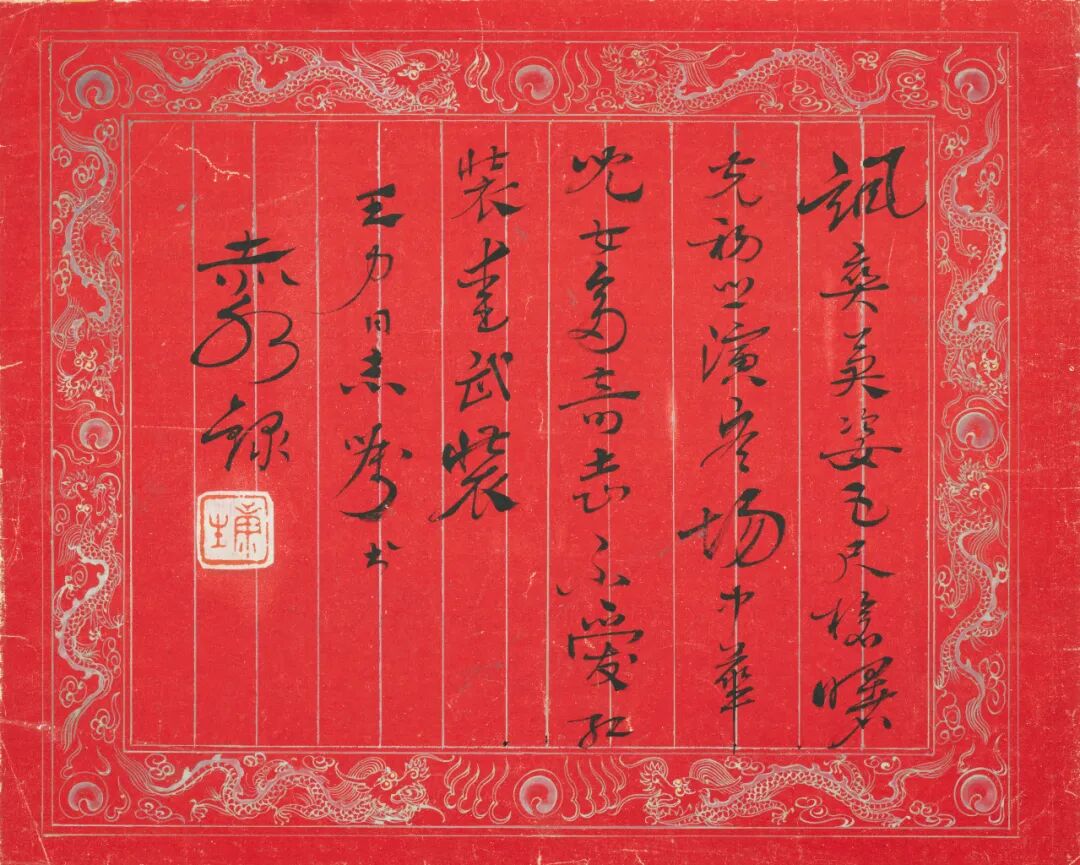 颯爽英姿五尺槍曙
光初照演兵場中華
兒女多奇志不愛紅
裝愛武裝
王力同志嘱书
赤水録
康生